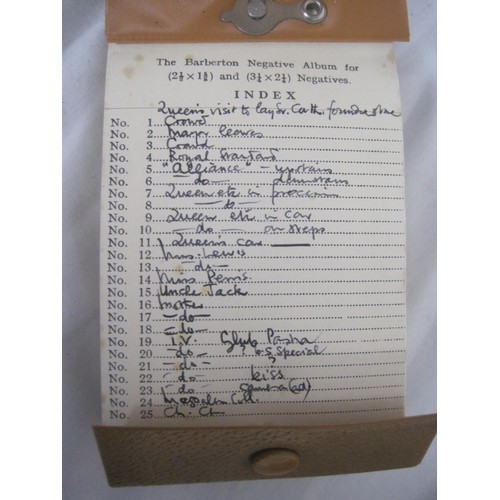 The Barberton Negative Album for
(2½ × 1⅝) and (3¼ × 2¼) Negatives.
INDEX
Queen's visit to lay Gr. Cath. foundn stone
No. 1. Crowd
No. 2. Major
No. 3. Crowd
No. 4. Royal Standard
No. 5. "Alliance" – upstairs
No. 6. – do – downstairs
No. 7. Queen etc in procession
No. 8. – do –
No. 9. Queen etc in car
No. 10. – do – on steps
No. 11. Queen's car
No. 12. Miss. Lewis
No. 13. – do –
No. 14. Miss Ferris.
No. 15. Uncle Jack
No. 16. Mother
No. 17. – do –
No. 18. – do –
No. 19. T.V. Glub Pasha
No. 20. – do – Special
No. 21. – do –
No. 22. – do – kiss
No. 23. – do –
No. 24. Magdalen Coll.
No. 25. Ch. Ch.